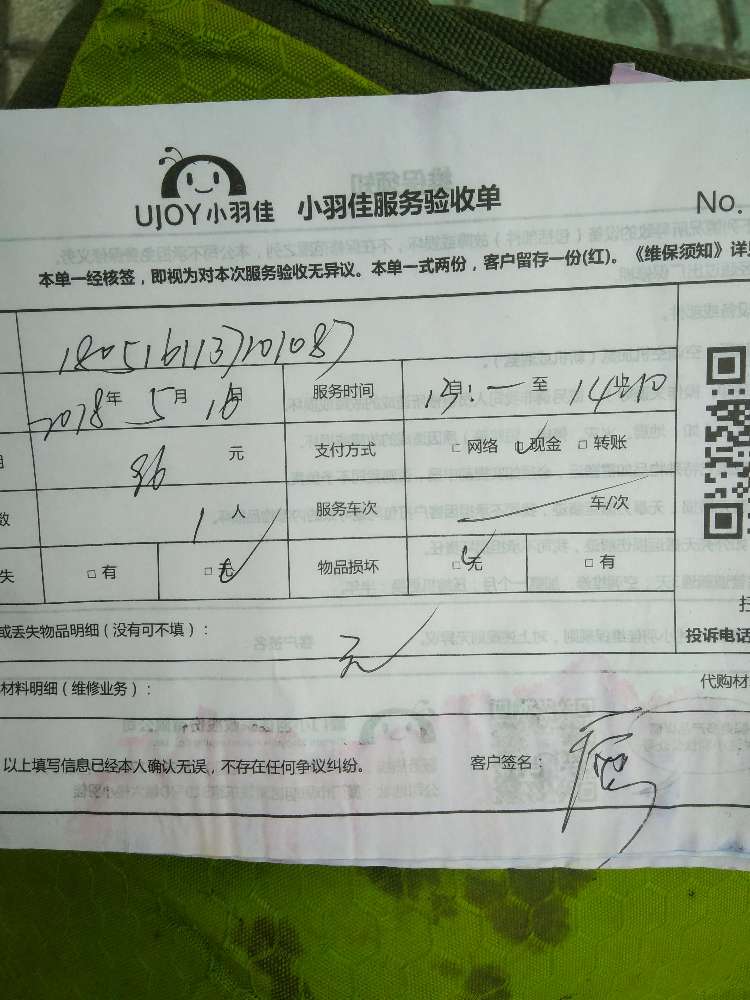 UJOY小羽佳 小羽佳服务验收单 No.
本单一经核签，即视为对本次服务验收无异议。本单一式两份，客户留存一份(红)。《维保须知》详
180516113720108
2018年 5月 16日 服务时间 13时 一 至 14时10
36 元 支付方式 □ 网络 □ 现金 □ 转账
数 1 人 服务车次 车/次
失 □ 有 □ 无 物品损坏 □ 无 □ 有
或丢失物品明细（没有可不填）： 无
投诉电话
材料明细（维修业务）： 代购材
以上填写信息已经本人确认无误，不存在任何争议纠纷。 客户签名：